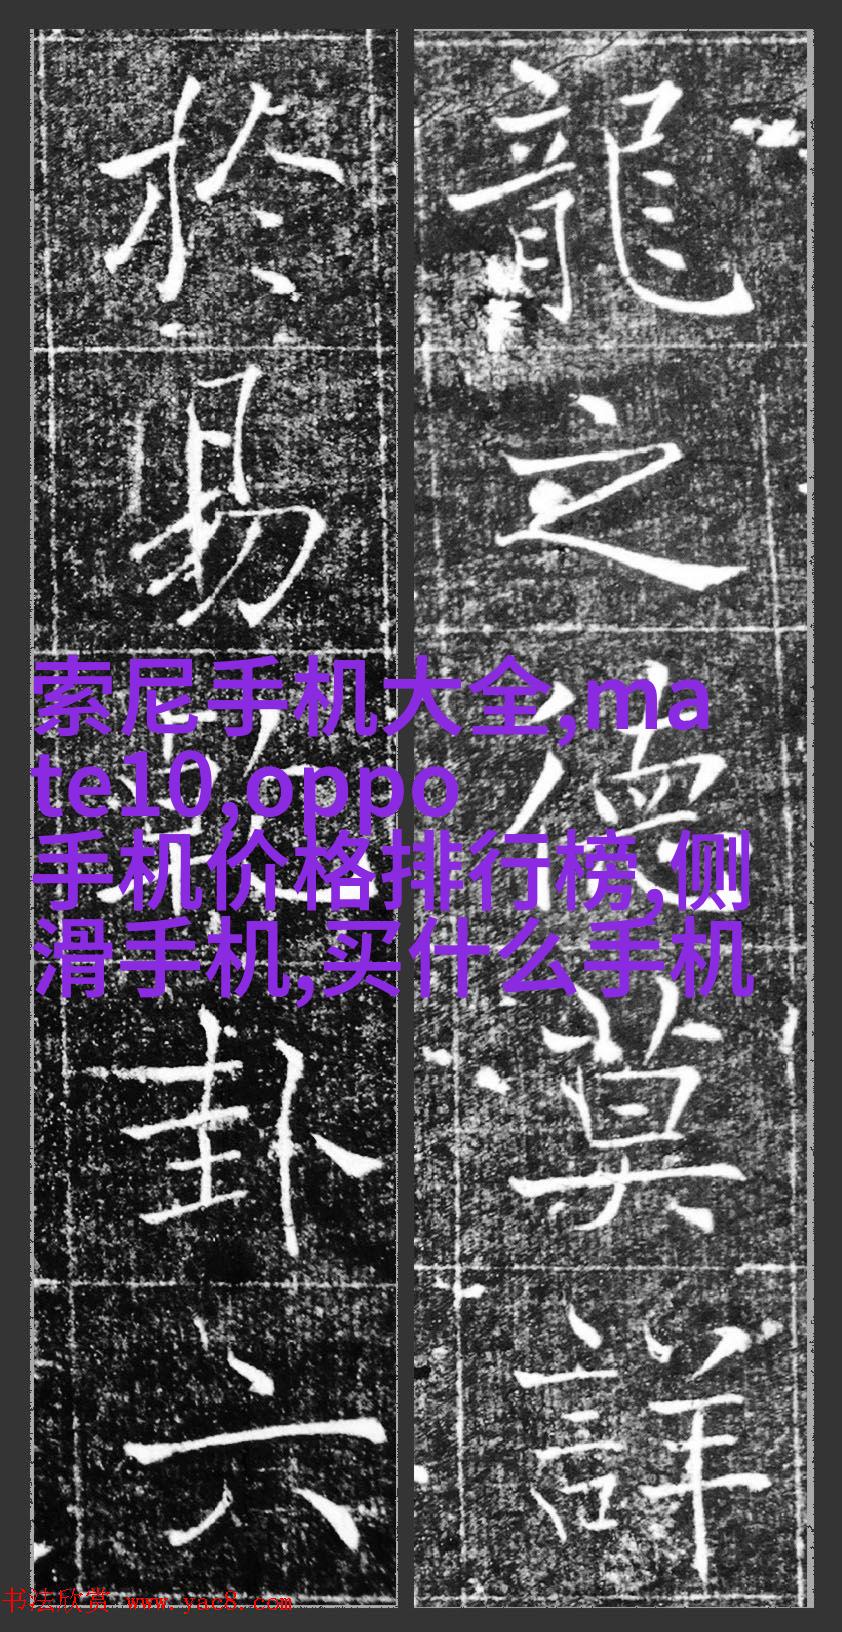 龍之德莫詳
於易
卦六
索尼手机大全,ma
te10,oppo
手机价格排行榜,侧
滑手机,买什么手机
书法欣赏 www.yac8.com